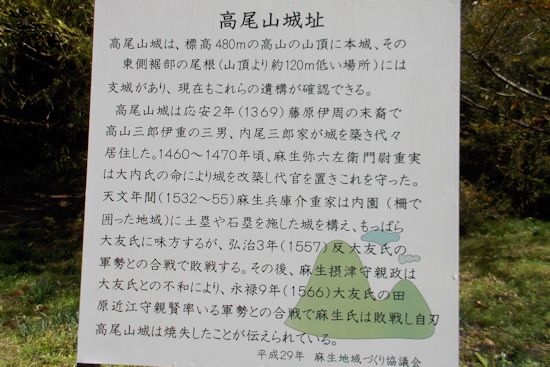 高尾山城址
高尾山城は、標高480mの高山の山頂に本城、その
東側裾部の尾根(山頂より約120m低い場所)には
支城があり、現在もこれらの遺構が確認できる。
高尾山城は応安2年(1369)藤原伊周の末裔で
高山三郎伊重の三男、内尾三郎家が城を築き代々
居住した。1460〜1470年頃、麻生弥六左衛門尉重実
は大内氏の命により城を改築し代官を置きこれを守った。
天文年間(1532〜55)麻生兵庫介重家は内園(柵で
囲った地域)に土塁や石塁を施した城を構え、もっぱら
大友氏に味方するが、弘治3年(1557)反大友氏の
軍勢との合戦で敗戦する。その後、麻生摂津守親政は
大友氏との不和により、永禄9年(1566)大友氏の田
原近江守親賢率いる軍勢との合戦で麻生氏は敗戦し自刃
高尾山城は焼失したことが伝えられている。
平成29年 麻生地域づくり協議会